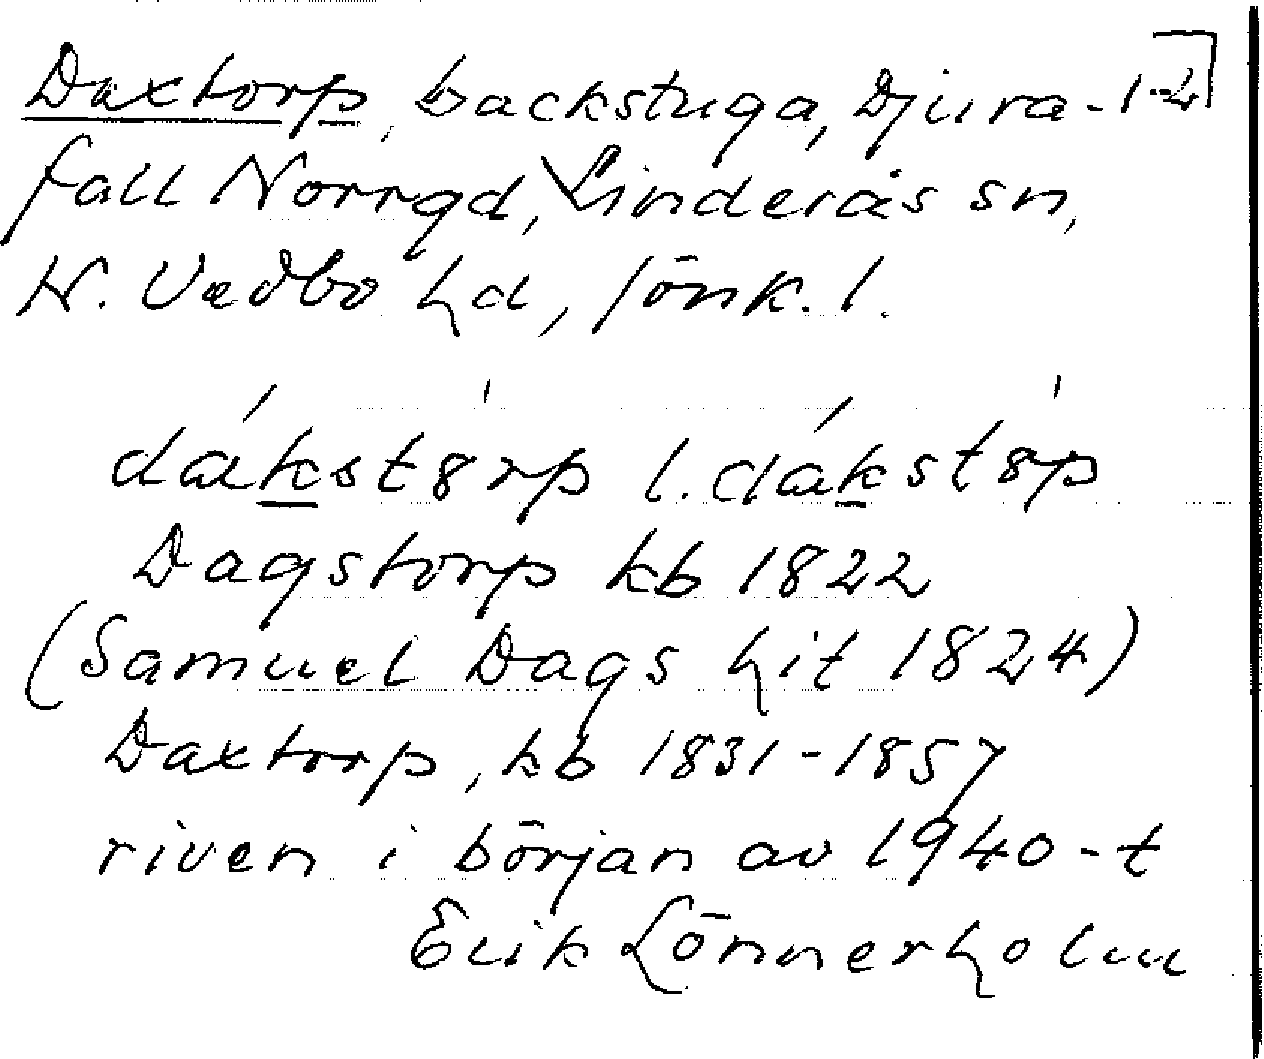 Daxtorp, backstuga, Djura- 1-4
fall Norrgd, Linderås sn,
N. Vedbo hd, Jönk. l.
dákstȣrp l. dákstȣp
Dagstorp kb 1822
(Samuel Dags hit 1824)
Daxtorp, kb 1831-1857
riven i början av 1940-t
Erik Lönnerholm